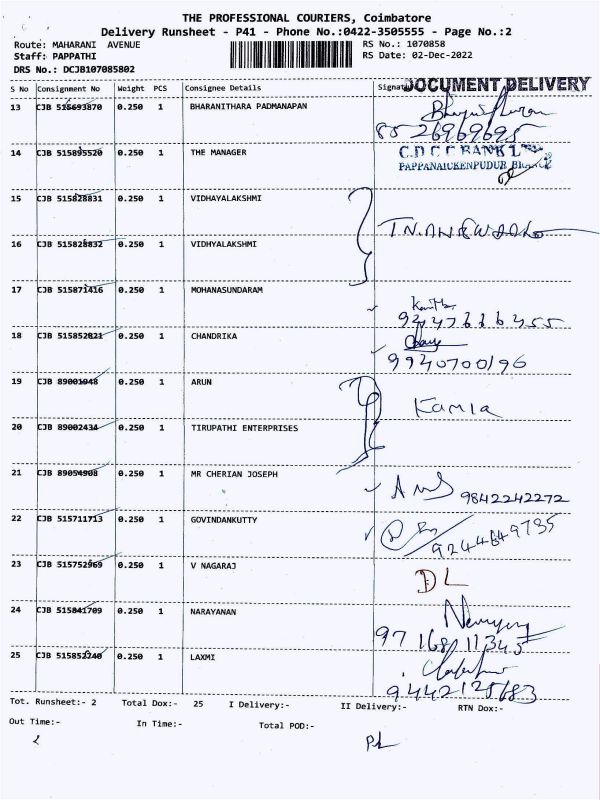 THE PROFESSIONAL COURIERS, Coimbatore
Delivery Runsheet - P41 - Phone No.:0422-3505555 - Page No.:2
Route: MAHARANI AVENUE
RS No.: 1070858
Staff: PAPPATHI
RS Date: 02-Dec-2022
DRS No.: DCJB107085802
DOCUMENT DELIVERY
S No Consignment No Weight PCS Consignee Details
13 CJB 515693870 0.250 1 BHARANITHARA PADMANAPAN
85 26969695
14 CJB 515895520 0.250 1 THE MANAGER
C.D C C BANK L
PAPPANAICKENPUDUR
15 CJB 515828831 0.250 1 VIDHAYALAKSHMI
16 CJB 515828832 0.250 1 VIDHYALAKSHMI
17 CJB 515871416 0.250 1 MOHANASUNDARAM
18 CJB 515852821 0.250 1 CHANDRIKA
9940700196
19 CJB 89001948 0.250 1 ARUN
Kamla
20 CJB 89002434 0.250 1 TIRUPATHI ENTERPRISES
21 CJB 89054908 0.250 1 MR CHERIAN JOSEPH
9842242272
22 CJB 515711713 0.250 1 GOVINDANKUTTY
9244649735
23 CJB 515752969 0.250 1 V NAGARAJ
DL
24 CJB 515841709 0.250 1 NARAYANAN
97168/11345
25 CJB 515852240 0.250 1 LAXMI
9442125683
Tot. Runsheet:- 2 Total Dox:- 25 I Delivery:- II Delivery:- RTN Dox:-
Out Time:- In Time:- Total POD:-